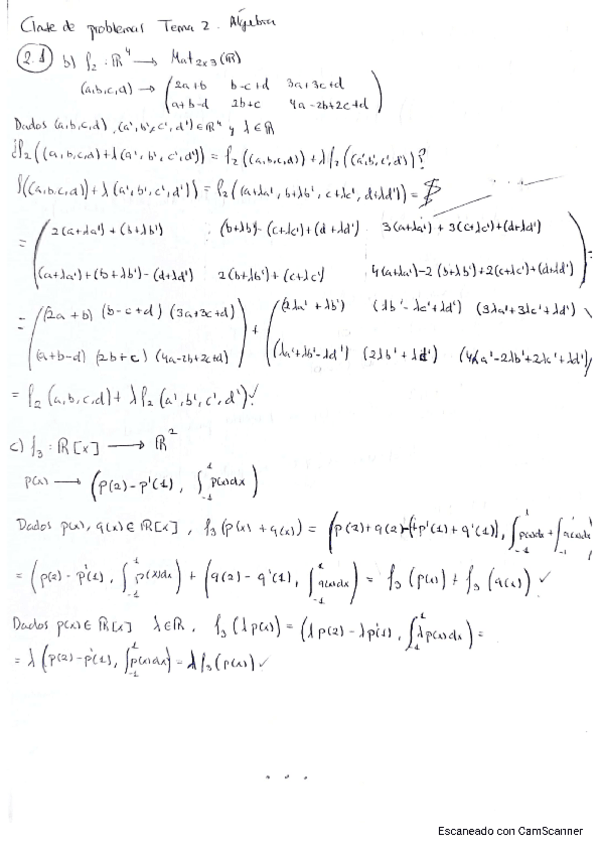 Clase de problemas Tema 2. Álgebra
2.1 b) f₂ : ℝ⁴ → Mat₂ₓ₃(ℝ)
(a,b,c,d) → ( 2a+b b-c+d 3a+3c+d
a+b-d 2b+c 4a-2b+2c+d )
Dados (a,b,c,d), (a',b',c',d') ∈ ℝ⁴ y λ ∈ ℝ
¿f₂((a,b,c,d)+λ(a',b',c',d')) = f₂((a,b,c,d)) + λf₂((a',b',c',d'))?
f((a,b,c,d)+λ(a',b',c',d')) = f₂((a+λa', b+λb', c+λc', d+λd')) =
= ( 2(a+λa')+(b+λb') (b+λb')-(c+λc')+(d+λd') 3(a+λa')+3(c+λc')+(d+λd')
(a+λa')+(b+λb')-(d+λd') 2(b+λb')+(c+λc') 4(a+λa')-2(b+λb')+2(c+λc')+(d+λd') ) =
= ( (2a+b) (b-c+d) (3a+3c+d) + ( (2λa'+λb') (λb'-λc'+λd') (3λa'+3λc'+λd')
(a+b-d) (2b+c) (4a-2b+2c+d) ) (λa'+λb'-λd') (2λb'+λd') (4λa'-2λb'+2λc'+λd')
= f₂(a,b,c,d)+λf₂(a',b',c',d') ✓
c) f₃ : ℝ[x] → ℝ²
p(x) → (p(2)-p'(1), ∫₋₁¹ p(x)dx)
Dados p(x), q(x) ∈ ℝ[x], f₃(p(x)+q(x)) = (p(2)+q(2)-(p'(1)+q'(1)), ∫₋₁¹ p(x)dx + ∫₋₁¹ q(x)dx
= (p(2)-p'(1), ∫₋₁¹ p(x)dx) + (q(2)-q'(1), ∫₋₁¹ q(x)dx = f₃(p(x)) + f₃(q(x)) ✓
Dados p(x) ∈ ℝ[x] λ ∈ ℝ, f₃(λp(x)) = (λp(2)-λp'(1), ∫₋₁¹ λp(x)dx) =
= λ(p(2)-p'(1), ∫₋₁¹ p(x)dx) = λf₃(p(x)) ✓
...
Escaneado con CamScanner